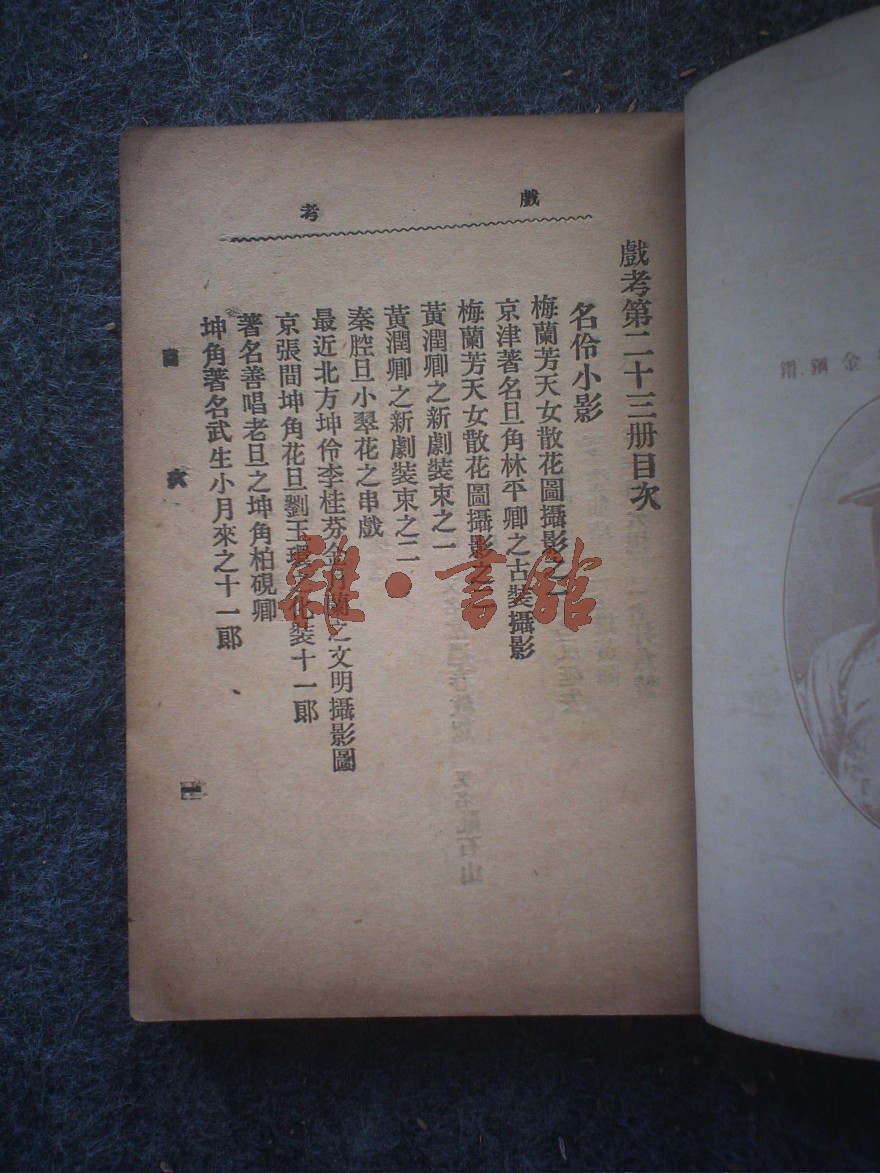 戲考
戲考第二十三册目次
名伶小影
梅蘭芳天女散花圖攝影之一
京津著名旦角林平卿之古裝攝影
梅蘭芳天女散花圖攝影之二
黃潤卿之新劇裝束之一
黃潤卿之新劇裝束之二
秦腔旦小翠花之串戲
最近北方坤伶李桂芬金月蘭之文明攝影圖
京張間坤角花旦劉玉環之化裝十一郎
著名善唱老旦之坤角柏硯卿
坤角著名武生小月來之十一郎、
一
雜·書館
金鋼鑽